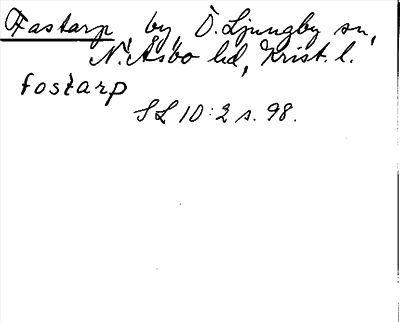 Fastarp, by, Ö. Ljungby sn,
N. Åsbo hd, Krist. l.
fostarp
SL 10:2 s. 98.